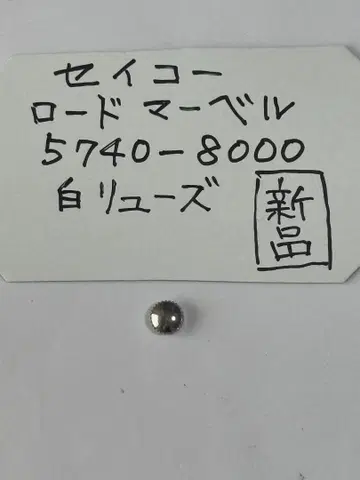 セイコー
ロード マーベル
5740-8000
白リューズ
新品